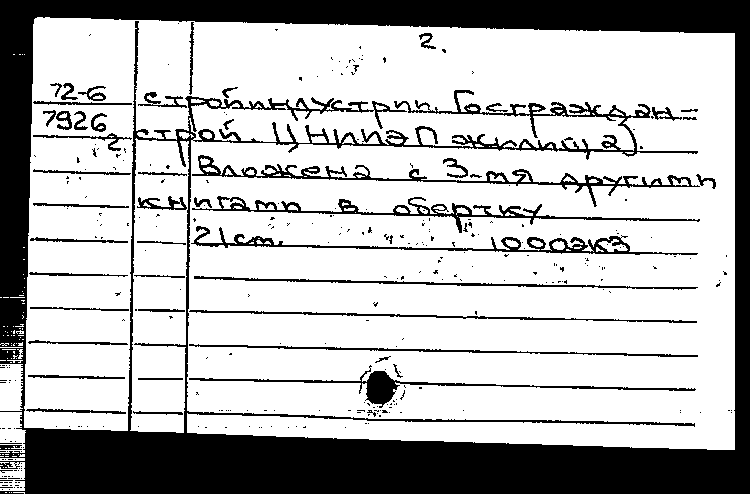 2.
72-6 стройиндустрии. Госграждан-
7926 строй. ЦНИИЭП жилища).
2
Вложена с 3-мя другими
книгами в обертку
21 cm. 1000экз